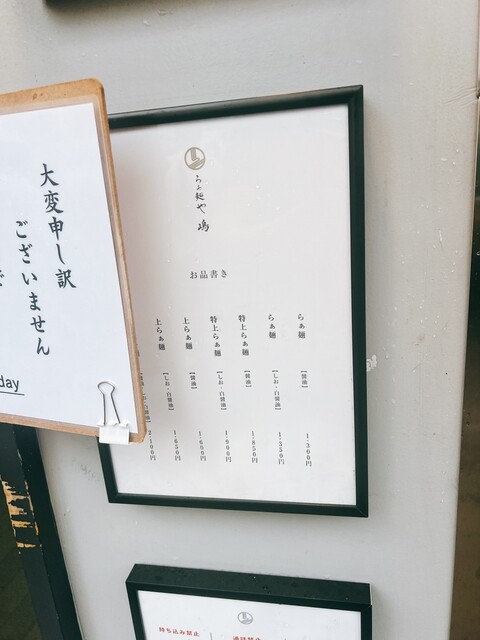 大変申し訳
ございません
day
らぁ麺や 嶋
お品書き
らぁ麺 【醤油】 1,300円
らぁ麺 【しお・白醤油】 1,350円
特上らぁ麺 【醤油】 1,850円
特上らぁ麺 【しお・白醤油】 1,900円
上らぁ麺 【醤油】 1,600円
上らぁ麺 【しお・白醤油】 1,650円
持ち込み禁止
通話禁止